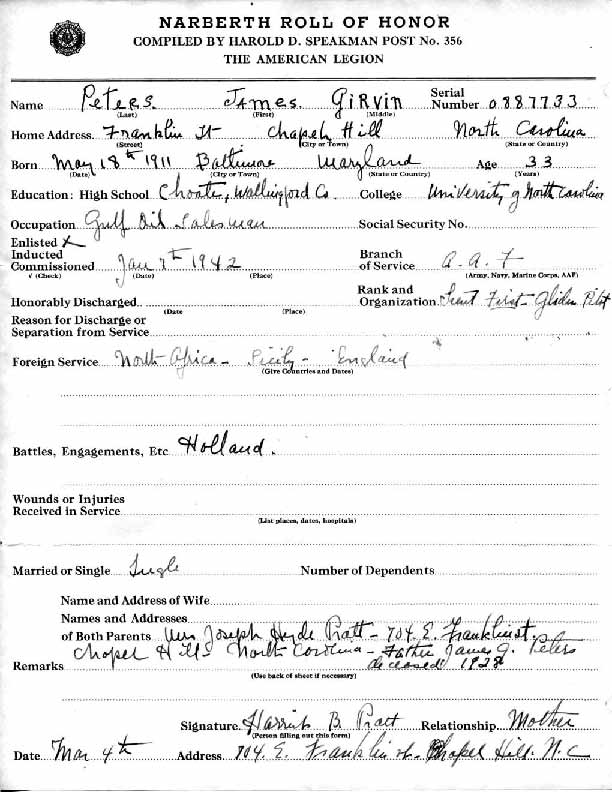 NARBERTH ROLL OF HONOR
COMPILED BY HAROLD D. SPEAKMAN POST No. 356
THE AMERICAN LEGION
Name Peters James Girvin Serial Number 0887733
(Last) (First) (Middle)
Home Address Franklin St Chapel Hill North Carolina
(Street) (City or Town) (State or Country)
Born May 18th 1911 Baltimore Maryland Age 33
(Date) (City or Town) (State or Country) (Years)
Education: High School Choate, Wallingford Co. College University of North Carolina
Occupation Gulf Oil Salesman Social Security No.
Enlisted X
Inducted
Commissioned Jan 7th 1942 Branch of Service A.A.F
√ (Check) (Date) (Place) (Army, Navy, Marine Corps, AAF)
Honorably Discharged Rank and Organization Lieut First - Glider Pilot
(Date (Place)
Reason for Discharge or
Separation from Service
Foreign Service North Africa - Sicily - England
(Give Countries and Dates)
Battles, Engagements, Etc Holland.
Wounds or Injuries
Received in Service
(List places, dates, hospitals)
Married or Single Single Number of Dependents
Name and Address of Wife
Names and Addresses
of Both Parents Mrs Joseph Hyde Pratt - 704. E. Franklin st.
Chapel Hill North Carolina - Father James G. Peters
Remarks deceased 1928
(Use back of sheet if necessary)
Signature Harriet B. Pratt Relationship Mother
(Person filling out this form)
Date Mar 4th Address 704. E. Franklin st - Chapel Hill. N.C